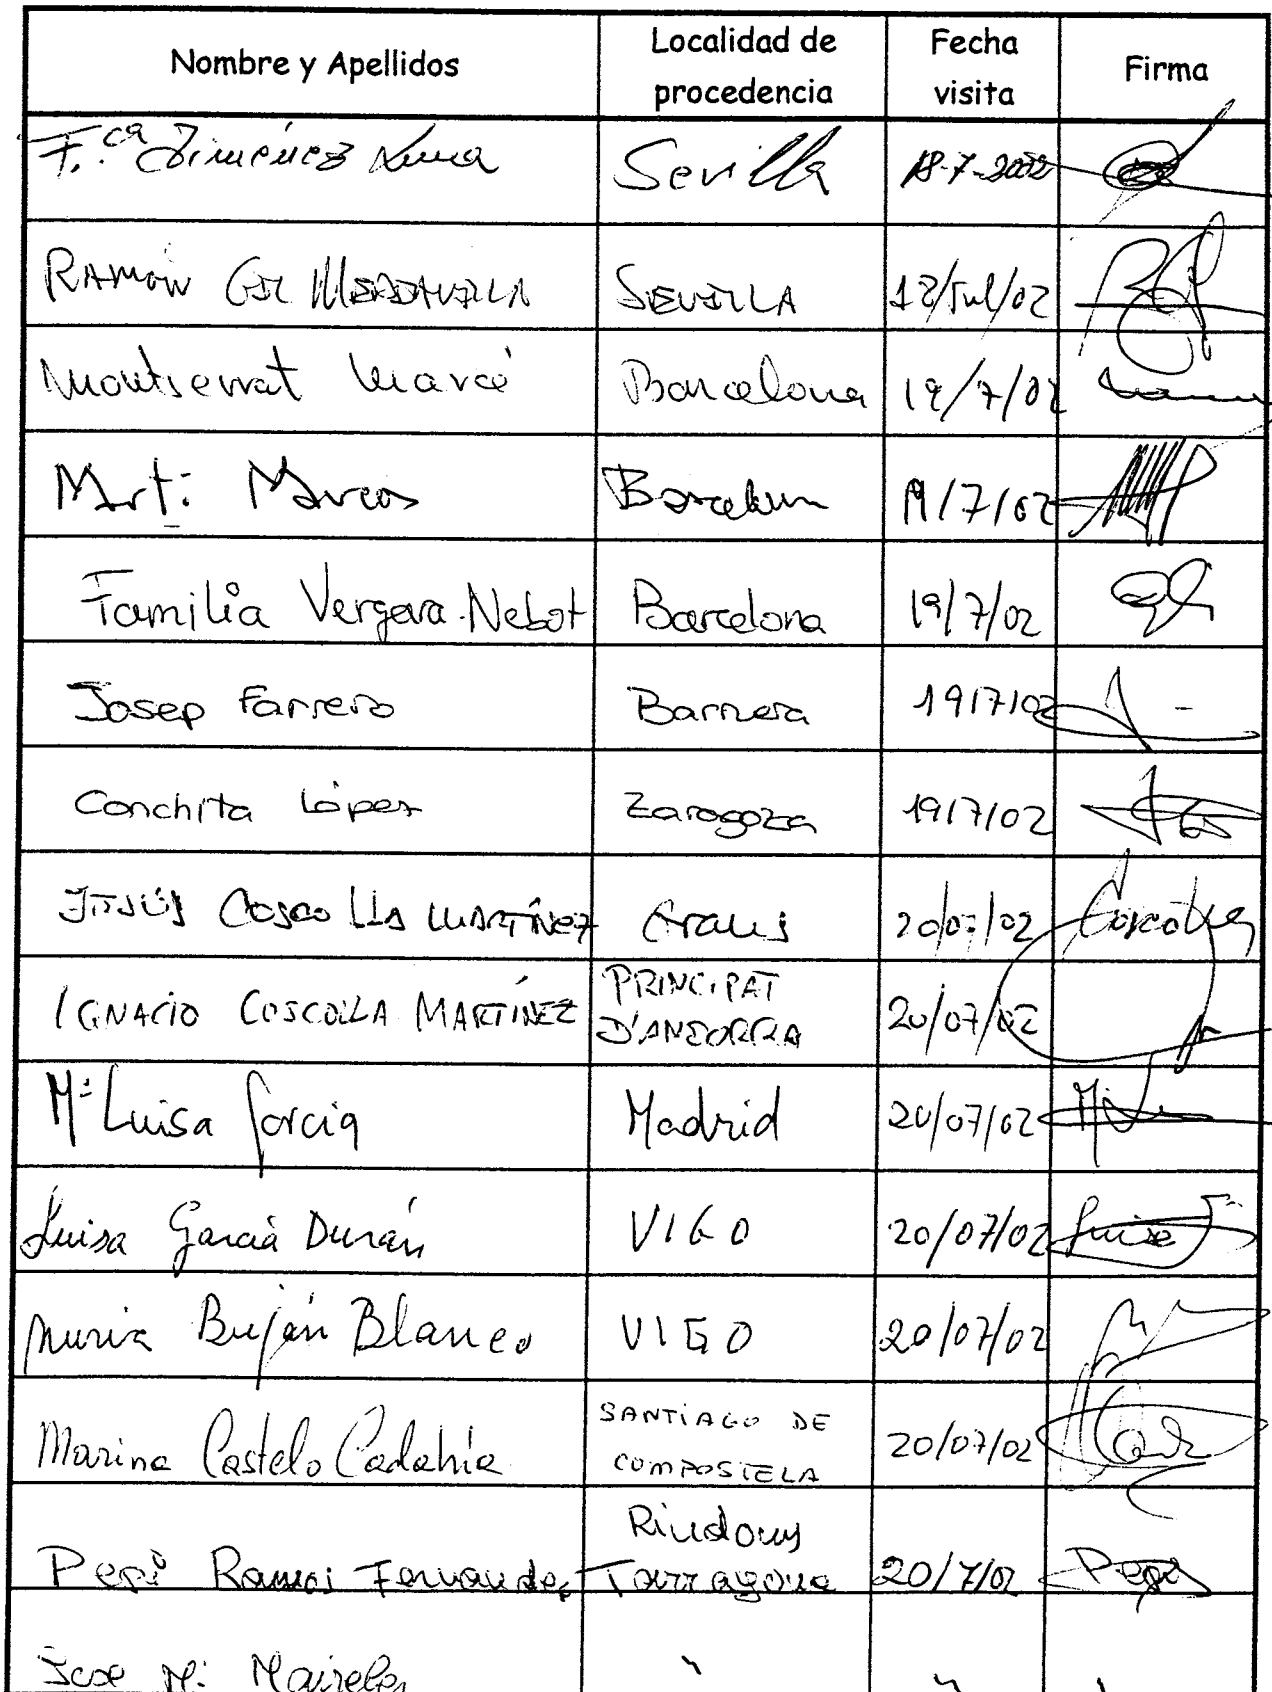 Nombre y Apellidos Localidad de procedencia Fecha visita Firma
F.ca Jiménez Luna Sevilla 18-7-2002
RAMÓN GIL SEVILLA 18/Jul/02
Montserrat Marcé Barcelona 19/7/02
Martí Marcos Barcelona 19/7/02
Familia Vergara-Nebot Barcelona 19/7/02
Josep Farrero 19/7/02
Conchita López Zaragoza 19/7/02
JESÚS COSCOLLA MARTÍNEZ Graus 20/07/02 Coscolla
IGNACIO COSCOLLA MARTÍNEZ PRINCIPAT D'ANDORRA 20/07/02
Mª Luisa García Madrid 20/07/02
Luisa García Durán VIGO 20/07/02 Luisa
Nuria Buján Blanco VIGO 20/07/02
Marina Castelo Cadahía SANTIAGO DE COMPOSTELA 20/07/02
Pepi Ramos Fernandez Riudoms Tarragona 20/7/02 Pepi
Jose Mª " "